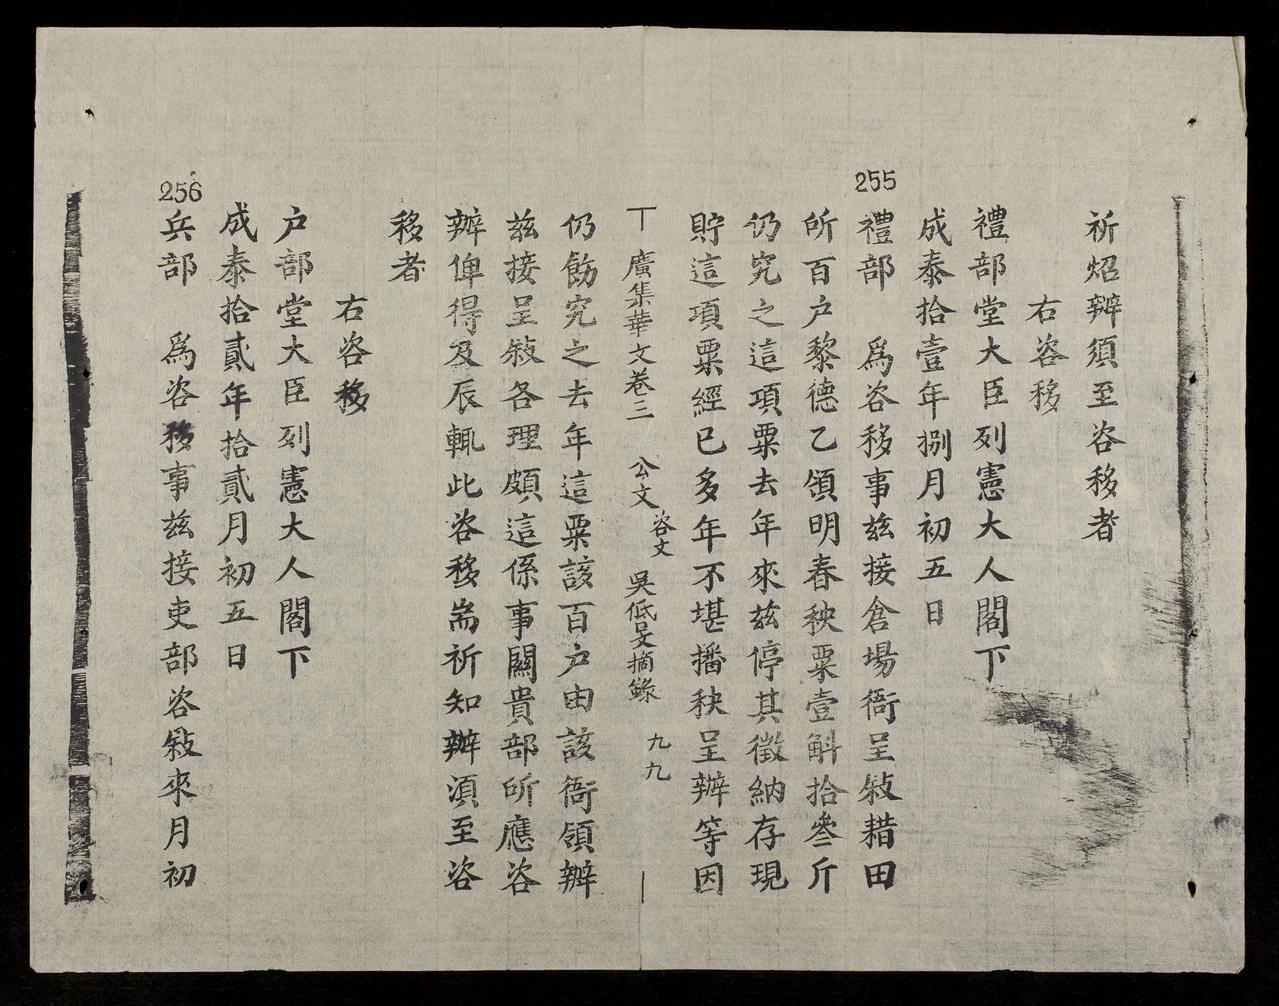 祈炤辦須至咨移者
右咨移
禮部堂大臣列憲大人閣下
成泰拾壹年捌月初五日
255
禮部　爲咨移事兹接倉場衙呈敍耤田
所百户黎德乙領明春秧粟壹斛拾叄斤
仍究之這項粟去年來兹停其徵納存現
貯這項粟經已多年不堪播秧呈辦等因
廣集華文卷三　公文 咨文　吳低旻摘錄　九九
仍飭究之去年這粟該百户由該衙領辦
兹接呈敍各理頗這係事關貴部所應咨
辦俾得及辰輒此咨移耑祈知辦湏至咨
移者
右咨移
户部堂大臣列憲大人閣下
成泰拾貳年拾貳月初五日
256
兵部　爲咨移事兹接吏部咨敍來月初